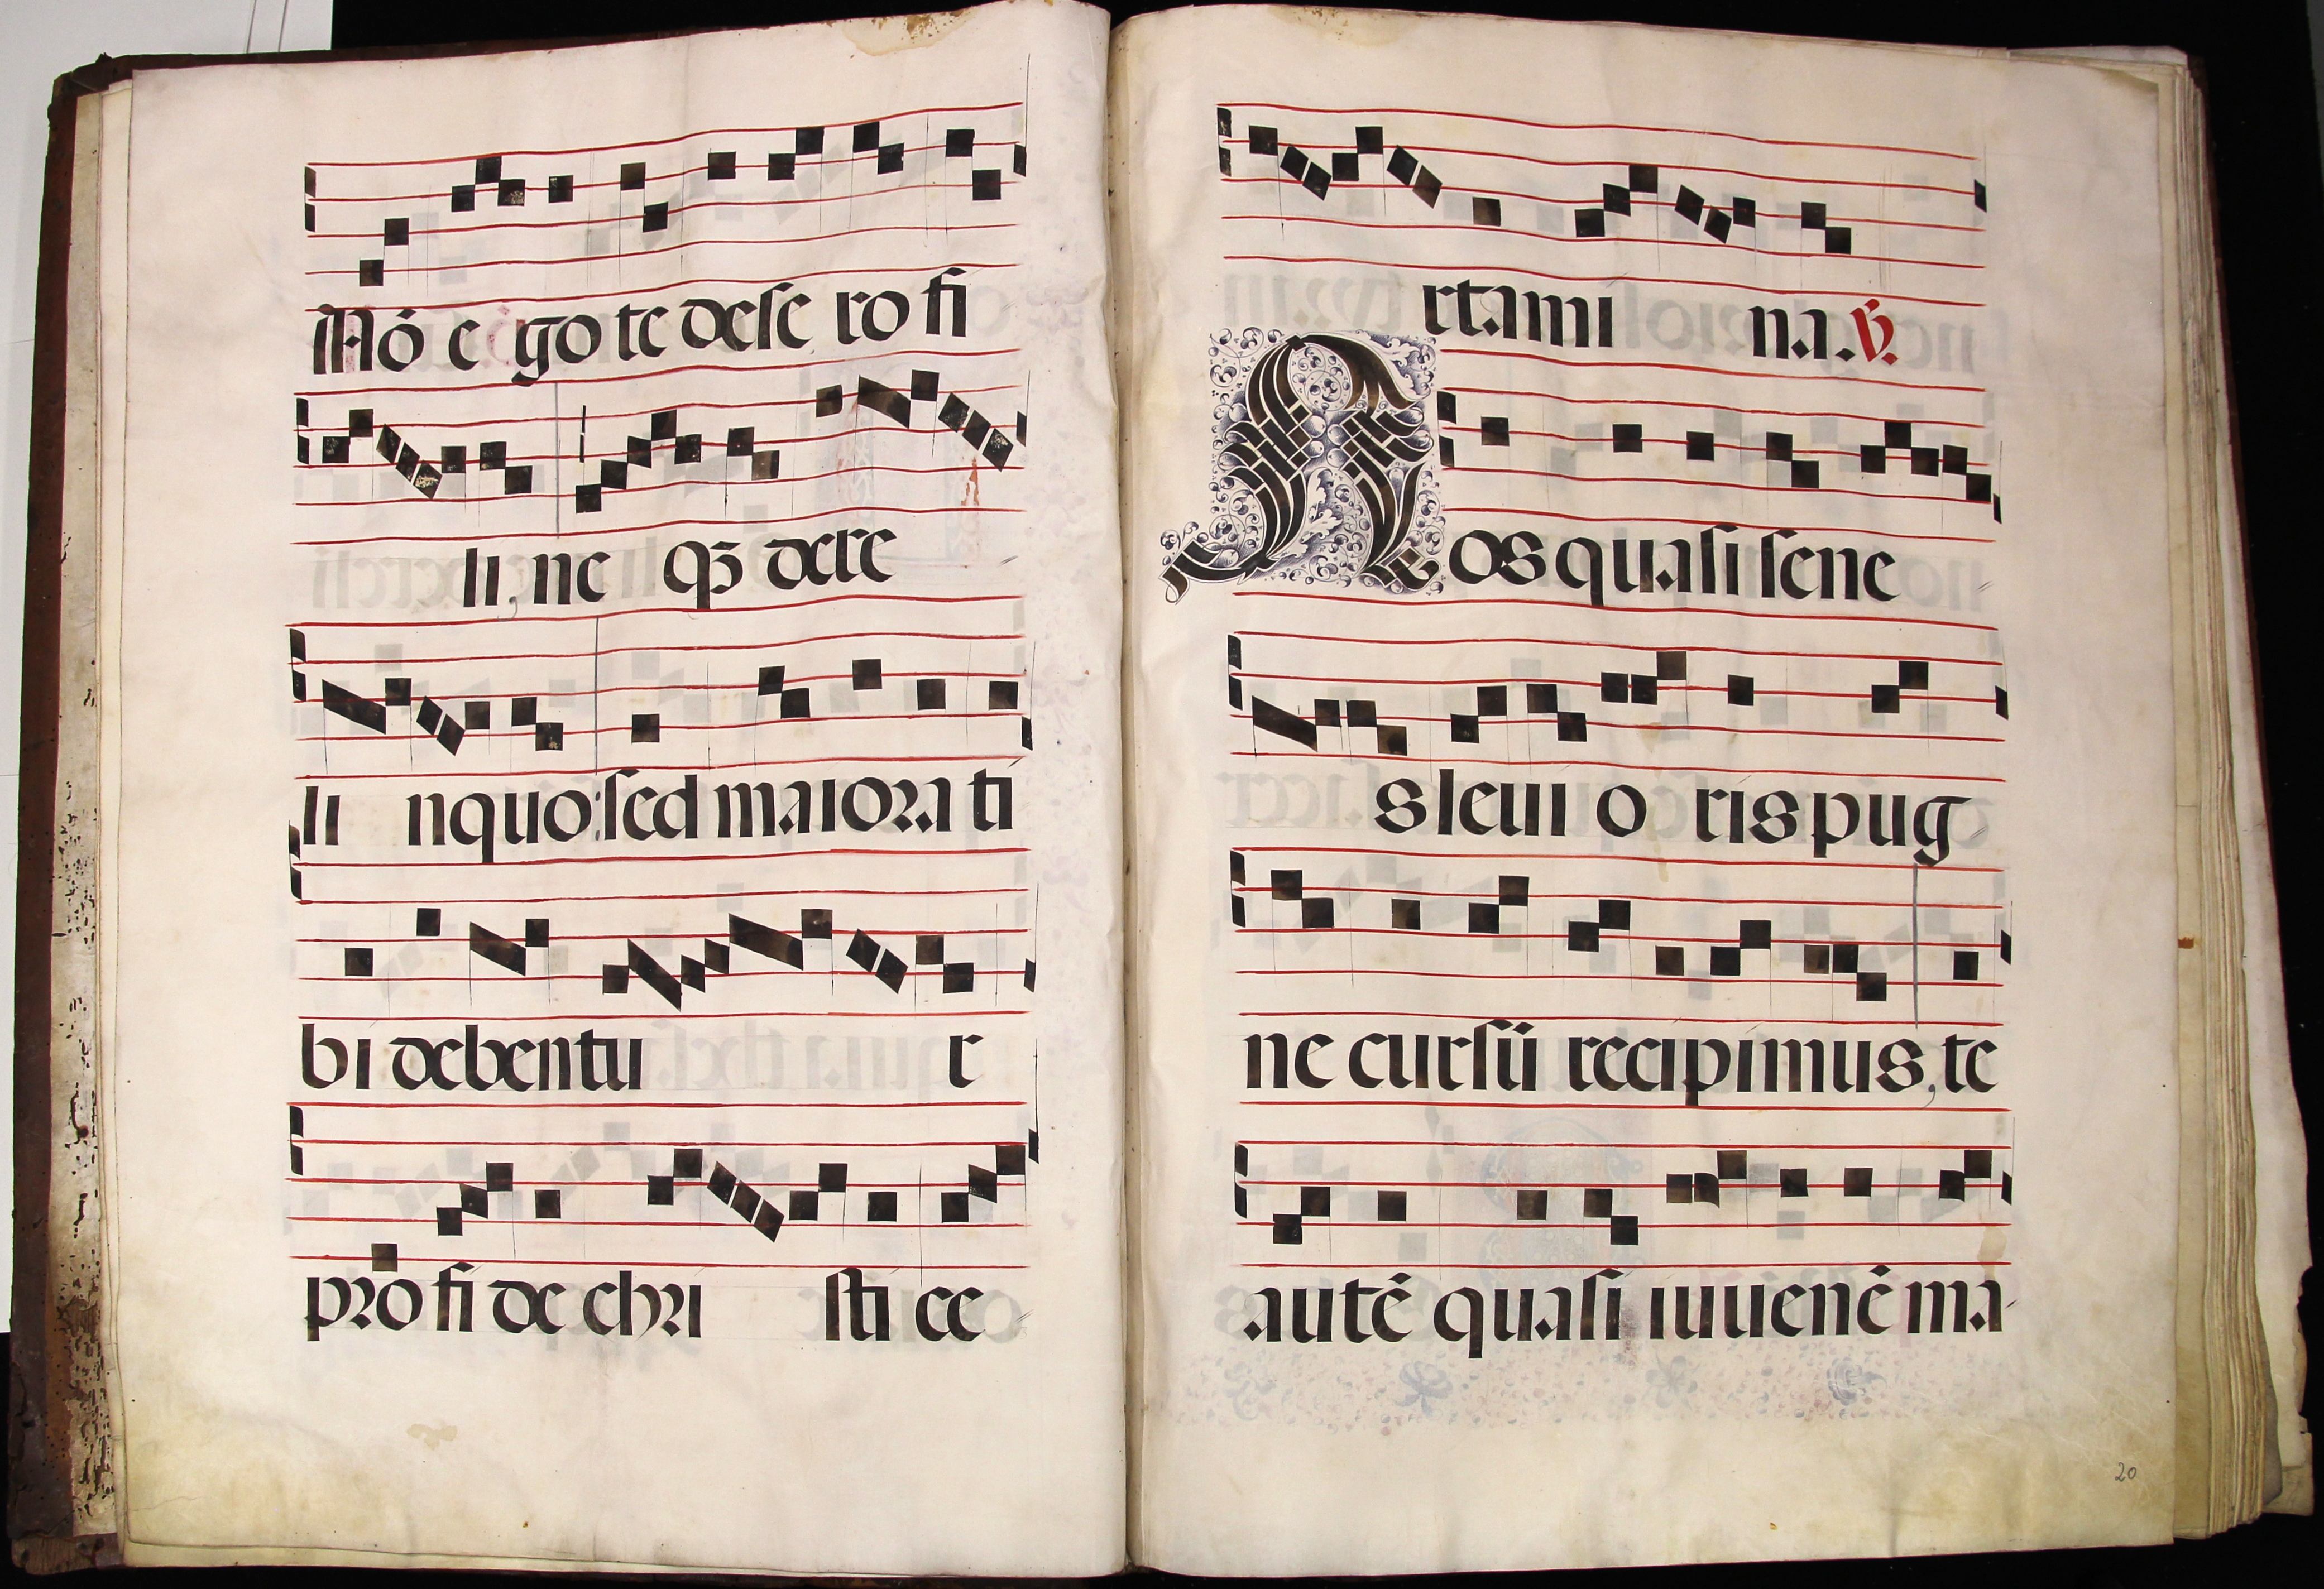 Nō e go te dese ro fi
li, ne qꝫ dere
li nquo: sed maiora ti
bi debentu r
pro fi de chri sti ce
rtami na. ℣.
Nos quasi sene
s leui o ris pug
ne cursū recipimus, te
autē quasi iuuenē ma
20